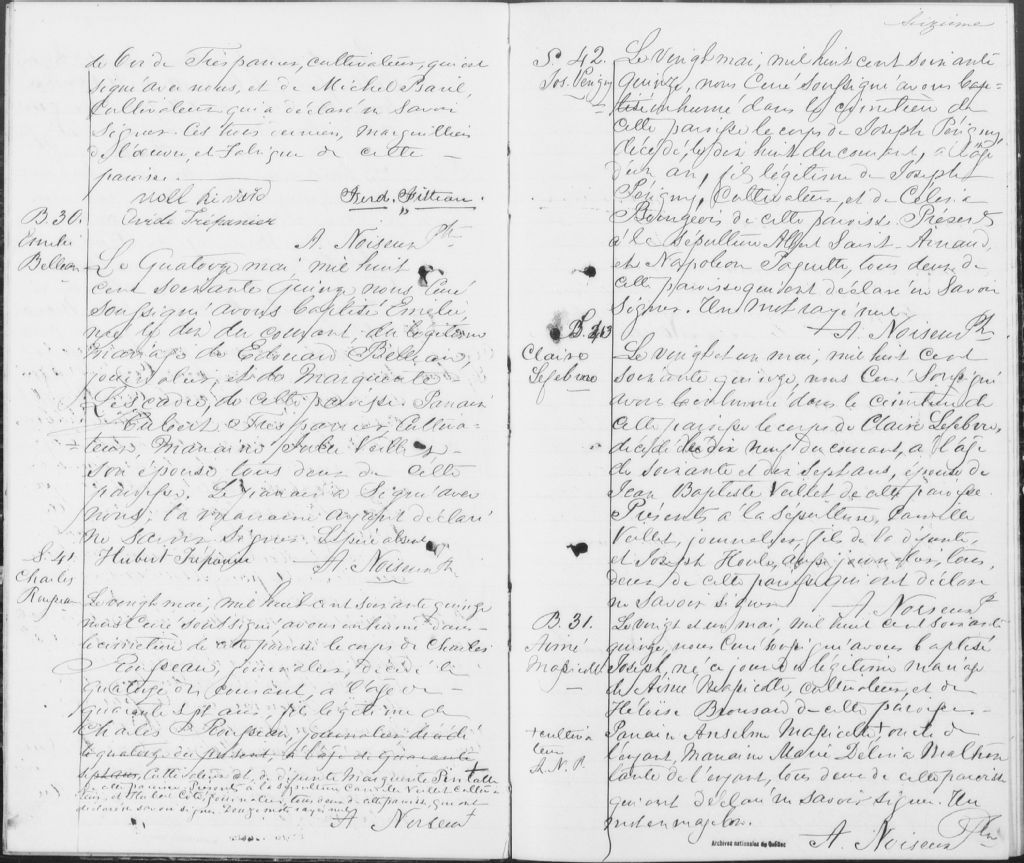 de Ovide Trépanier, cultivateur, qui ont
signé avec nous, et de Michel Baril,
Cultivateur qui a déclaré ne savoir
signer. Ces trois marguilliers
de l'œuvre, et fabrique de cette
paroisse.
Ferd. Filteau
Ovide Trépanier
A. Noiseux Ptre
B. 30.
Emelie
Le Quatorze mai, mil huit
cent soixante Quinze, nous Curé
soussigné avons baptisé Emelie,
née le dix du courant, du légitime
mariage de Edouard
journalier, et de Marguerite
de cette paroisse. Parrain
Hubert Trépanier, Cultiva-
teur, Marraine Julie Veillet
son épouse tous deux de cette
paroisse. Le parrain a signé avec
nous, la marraine ayant déclaré
ne savoir signer. Le père absent
Hubert Trépanier
A. Noiseux Ptre
S. 41
Charles
Rouseau
Le vingt mai, mil huit cent soixante quinze
nous curé soussigné, avons inhumé dans
le cimetière de cette paroisse le corps de Charles
journalier, décédé le
quatorze du courant, à l'age de
quarante sept ans, fils légitime de
Charles journalier décédé
le quatorze du présent, à l'age de quarante
sept ans, et de défunte Marguerite
de cette paroisse. Présents à la sépulture Camille Vallet cultiva-
teur, et Hubert journalier, tous deux de cette paroisse, qui ont
déclaré ne savoir signer.
A. Noiseux Ptre
S. 42.
Jos. Périgny
Le vingt mai, mil huit cent soixante
Quinze, nous Curé soussigné avons bap-
tisé inhumé dans le cimetière de
cette paroisse le corps de Joseph Périgny,
décédé, le dix huit du courant, à l'âge
d'un an, fils légitime de Joseph
Périgny, Cultivateur, et de Célesia
Bourgeois de cette paroisse. Présents
à la sépulture Albert Saint-Arnaud,
et Napoléon Paquette, tous deux de
cette paroisse qui ont déclaré ne savoir
signer. Un mot rayé nul.
A. Noiseux Ptre
S. 43
Claire
Lefebvre
Le vingt et un mai, mil huit cent
soixante quinze, nous Curé soussigné
avons inhumé dans le cimetière de
cette paroisse le corps de Claire Lefebvre,
décédée le dix neuf du courant, à l'âge
de soixante et dix sept ans, épouse de
Jean Baptiste Vallet de cette paroisse.
Présents à la sépulture, Camille
Vallet, journalier, fils de la défunte,
et Joseph Houle, aussi journalier, tous
deux de cette paroisse qui ont déclaré
ne savoir signer
A. Noiseux Ptre
B. 31.
Aimé
Mapicotte
Le vingt et un mai, mil huit cent soixante
quinze, nous Curé soussigné avons baptisé
Joseph, né ce jour du légitime mariage
de Aimé Mapicotte, cultivateur, et de
Héloïse Brousard de cette paroisse.
Parrain Anselme Mapicotte + oncle de
l'enfant, Marraine Marie Delima
tante de l'enfant, tous deux de cette paroisse
qui ont déclaré ne savoir signer. Un
mot en marge bon.
+ cultiva
teur
A. N. P.
A. Noiseux Ptre
Archives nationales du Québec